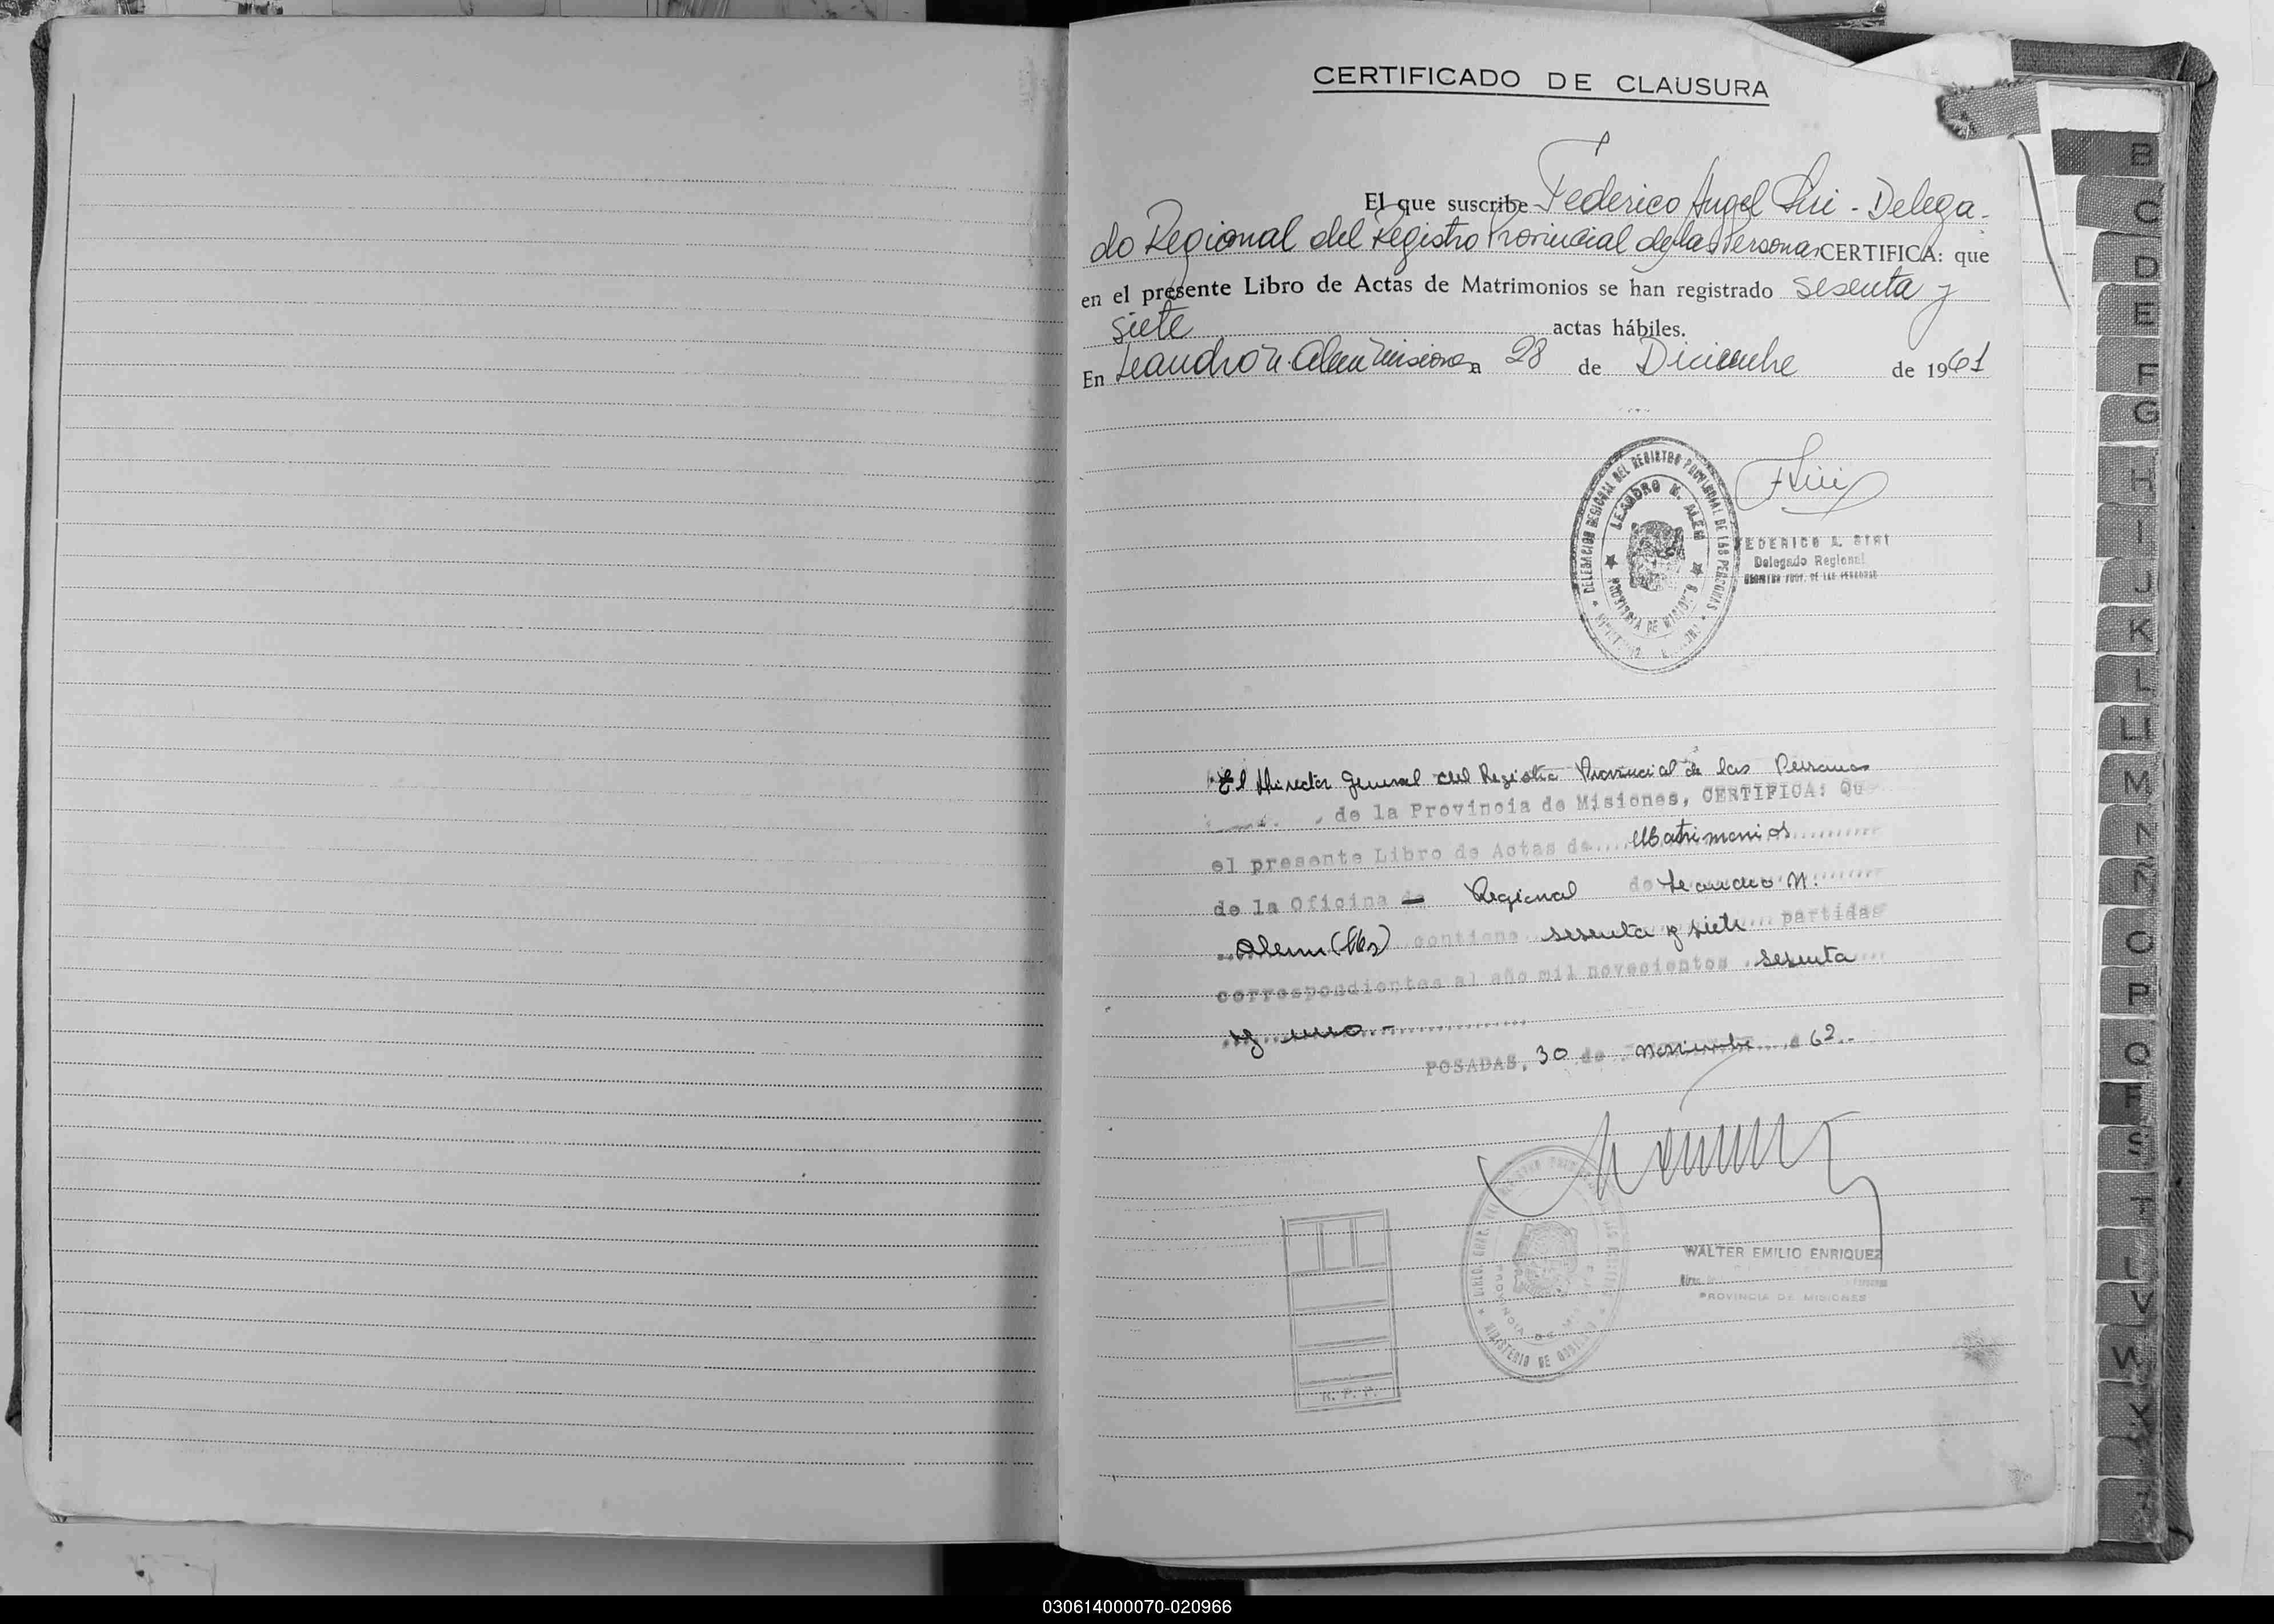 CERTIFICADO DE CLAUSURA
El que suscribe Federico Angel Siri - Delega-
do Regional del Registro Provincial de las Personas CERTIFICA: que
en el presente Libro de Actas de Matrimonios se han registrado sesenta y
siete actas hábiles.
En Leandro N. Alem Misiones a 28 de Diciembre de 1961
DELEGACION REGIONAL DEL REGISTRO PROVINCIAL DE LAS PERSONAS
LEANDRO N. ALEM
PROVINCIA DE MISIONES
FSiri
FEDERICO A. SIRI
Delegado Regional
REGISTRO PROV. DE LAS PERSONAS
El Director General del Registro Provincial de las Personas
de la Provincia de Misiones, CERTIFICA: Que
el presente Libro de Actas de Matrimonios
de la Oficina Regional de Leandro N.
Alem (Mes) contiene sesenta y siete partidas
correspondientes al año mil novecientos sesenta
y uno.-
POSADAS, 30 de noviembre de 62.-
MINISTERIO DE GOBIERNO
PROVINCIA DE
WALTER EMILIO ENRIQUEZ
PROVINCIA DE MISIONES
R. P. P.
B
C
D
E
F
G
H
I
J
K
L
Ll
M
N
Ñ
O
P
Q
R
S
T
U
V
W
X
Y
Z
030614000070-020966